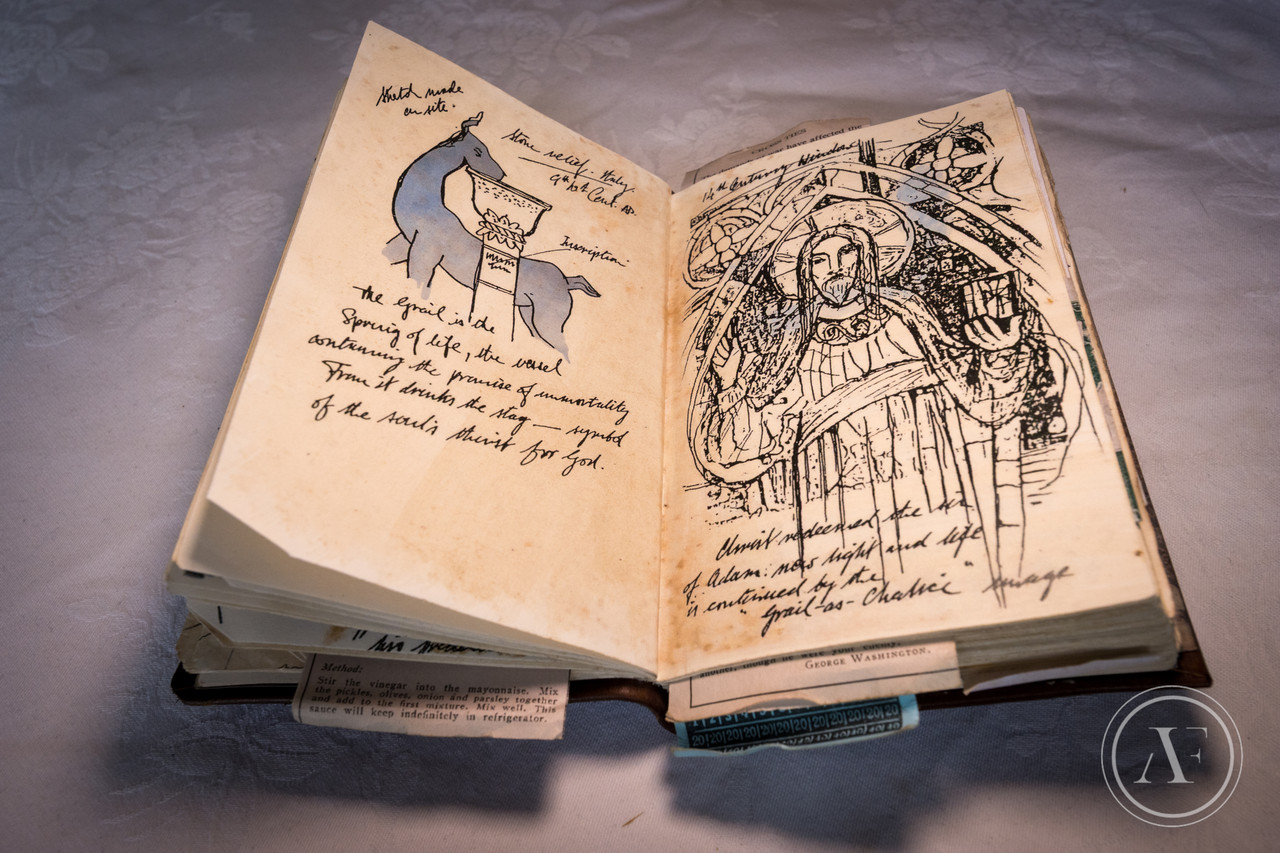 Sketch made
on site.
Stone relief. Italy.
9th Cent. AD.
Inscription
The Grail is the
Spring of life, the vessel
containing the promise of immortality
From it drinks the stag — symbol
of the soul's thirst for God.
have affected the
14th Century Window
Christ redeemed the sin
of Adam: now light and life
is continued by the
"Grail-as-Chalice" image
Method:
Stir the vinegar into the mayonnaise. Mix
the pickles, olives, onion and parsley together
and add to the first mixture. Mix well. This
sauce will keep indefinitely in refrigerator.
GEORGE WASHINGTON.
20|20|20|20|20|20|20|20|20|20
AF